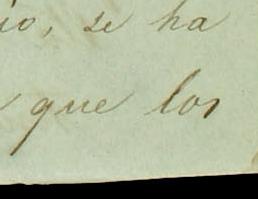 se ha
que los